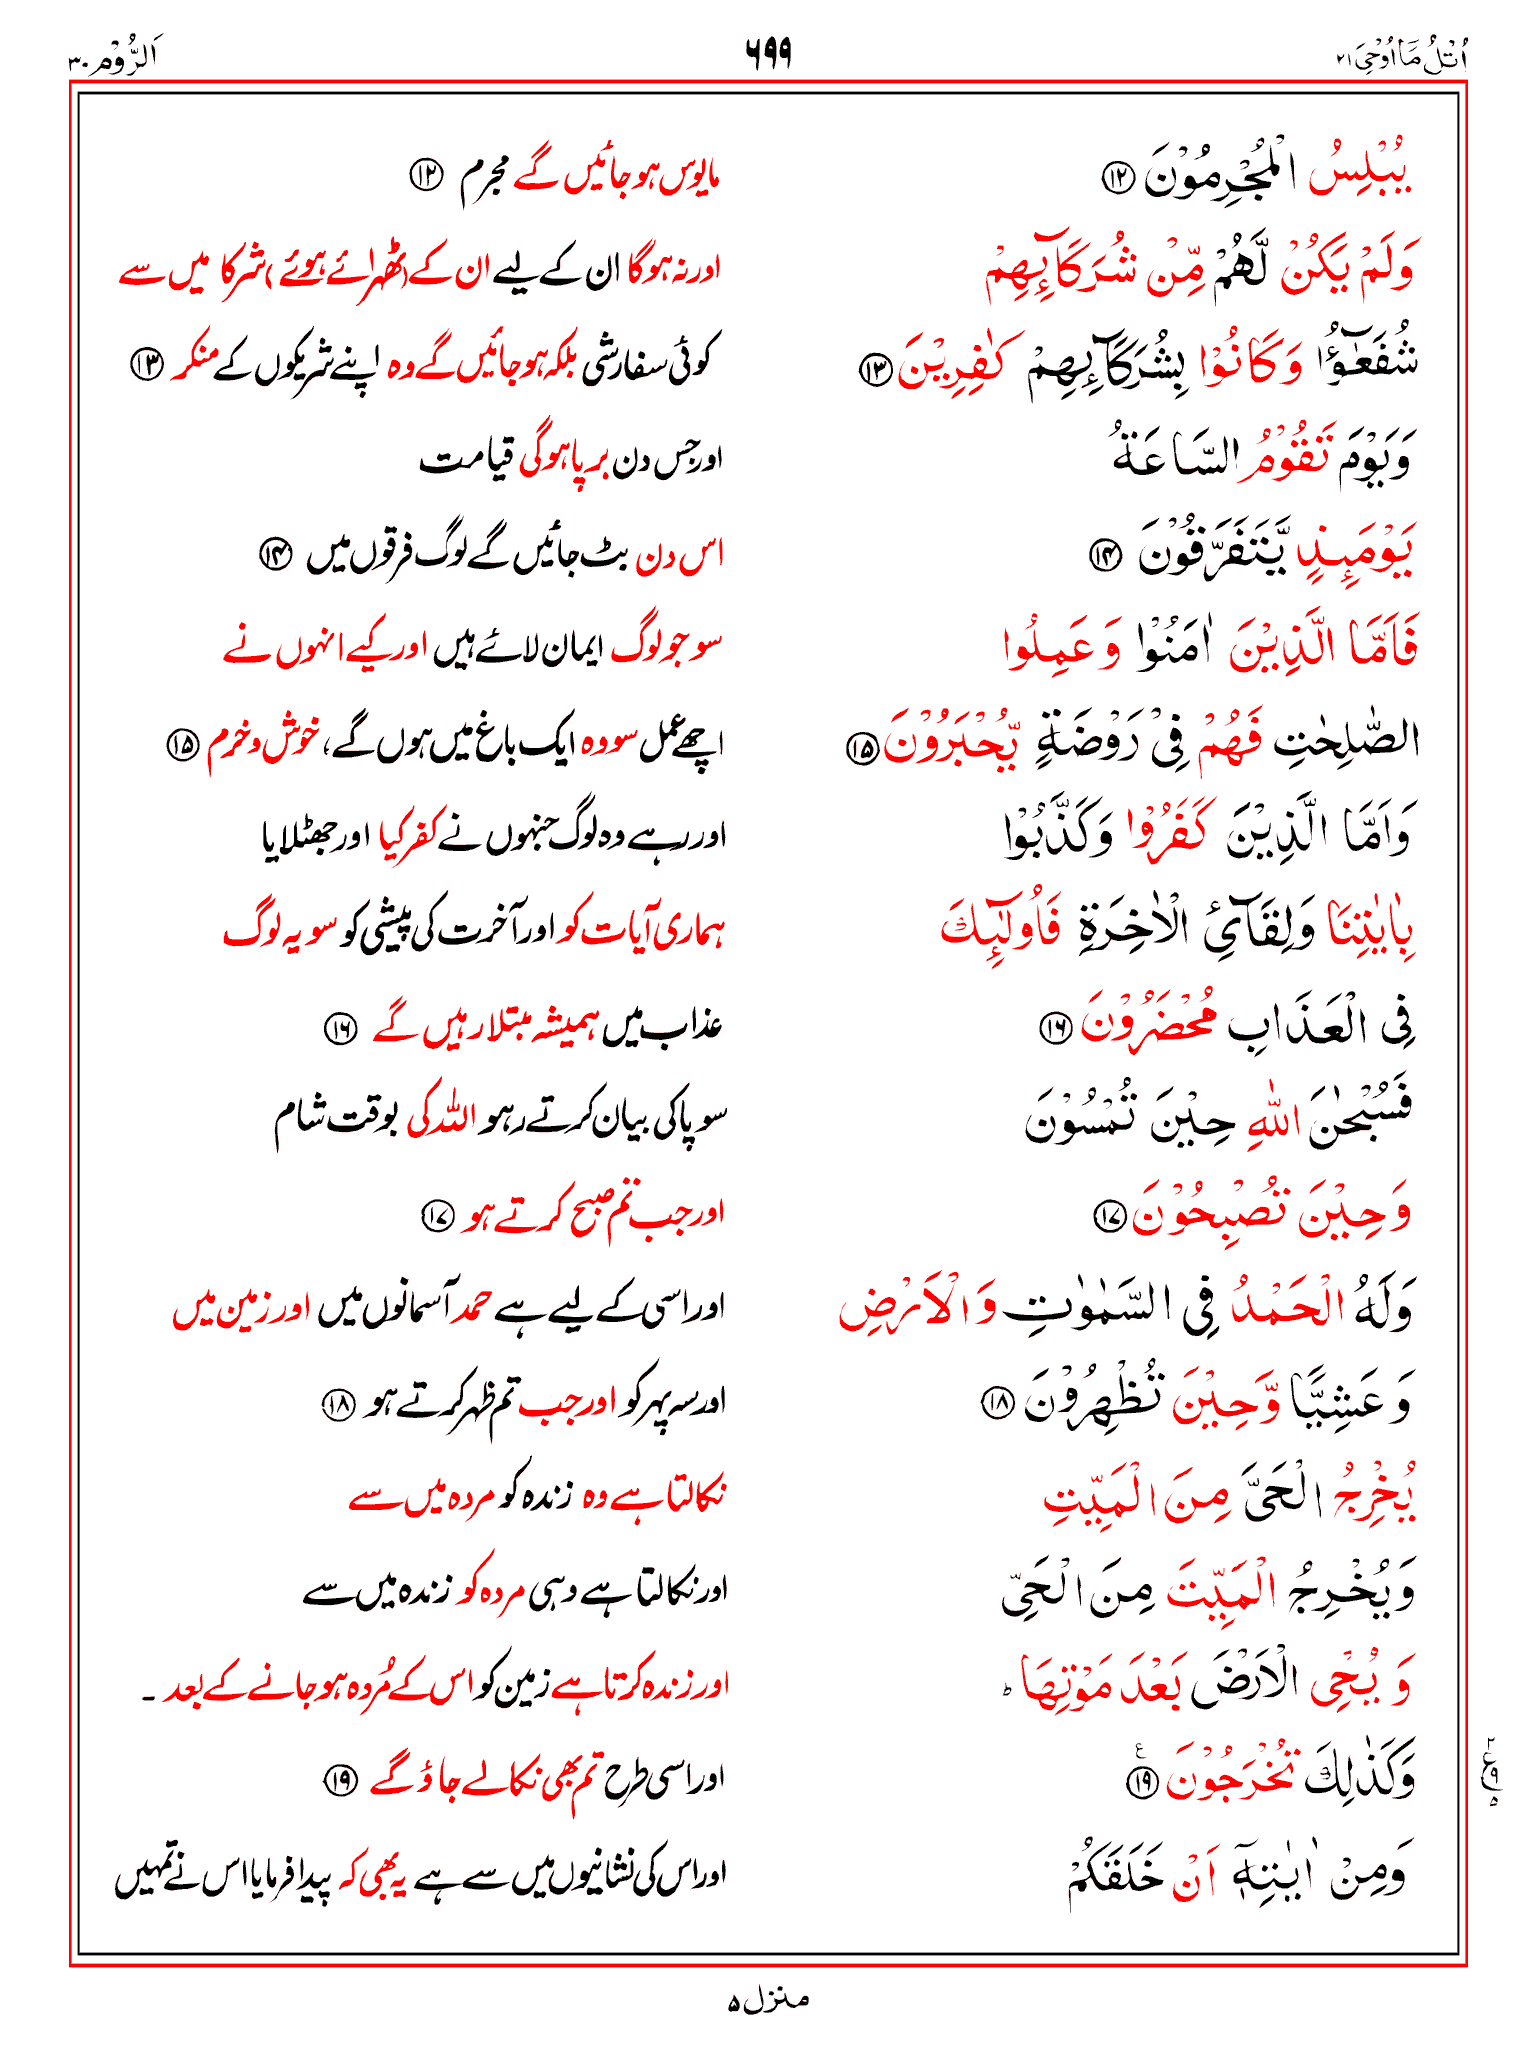 اُتْلُ مَآ اُوْحِیَ ۲۱ ۶۹۹ اَلرُّوْم ۳۰
یُبْلِسُ الْمُجْرِمُوْنَ ⑫ مایوس ہوجائیں گے مجرم ⑫
وَلَمْ یَكُنْ لَّهُمْ مِّنْ شُرَكَآىِٕهِمْ اور نہ ہوگا ان کے لیے ان کے (ٹھہرائے ہوئے) شرکا میں سے
شُفَعٰٓؤُا وَكَانُوْا بِشُرَكَآىِٕهِمْ كٰفِرِیْنَ ⑬ کوئی سفارشی بلکہ ہوجائیں گے وہ اپنے شریکوں کے منکر ⑬
وَیَوْمَ تَقُوْمُ السَّاعَةُ اور جس دن برپا ہوگی قیامت
یَوْمَىِٕذٍ یَّتَفَرَّقُوْنَ ⑭ اس دن بٹ جائیں گے لوگ فرقوں میں ⑭
فَاَمَّا الَّذِیْنَ اٰمَنُوْا وَعَمِلُوا سو جو لوگ ایمان لائے ہیں اور کیے انہوں نے
الصّٰلِحٰتِ فَهُمْ فِیْ رَوْضَةٍ یُّحْبَرُوْنَ ⑮ اچھے عمل سو وہ ایک باغ میں ہوں گے، خوش و خرم ⑮
وَاَمَّا الَّذِیْنَ كَفَرُوْا وَكَذَّبُوْا اور رہے وہ لوگ جنہوں نے کفر کیا اور جھٹلایا
بِاٰیٰتِنَا وَلِقَآئِ الْاٰخِرَةِ فَاُولٰٓىِٕكَ ہماری آیات کو اور آخرت کی پیشی کو سو یہ لوگ
فِی الْعَذَابِ مُحْضَرُوْنَ ⑯ عذاب میں ہمیشہ مبتلا رہیں گے ⑯
فَسُبْحٰنَ اللّٰهِ حِیْنَ تُمْسُوْنَ سو پاکی بیان کرتے رہو اللہ کی بوقت شام
وَحِیْنَ تُصْبِحُوْنَ ⑰ اور جب تم صبح کرتے ہو ⑰
وَلَهُ الْحَمْدُ فِی السَّمٰوٰتِ وَالْاَرْضِ اور اسی کے لیے ہے حمد آسمانوں میں اور زمین میں
وَعَشِیًّا وَّحِیْنَ تُظْهِرُوْنَ ⑱ اور سہ پہر کو اور جب تم ظہر کرتے ہو ⑱
یُخْرِجُ الْحَیَّ مِنَ الْمَیِّتِ نکالتا ہے وہ زندہ کو مردہ میں سے
وَیُخْرِجُ الْمَیِّتَ مِنَ الْحَیِّ اور نکالتا ہے وہی مردہ کو زندہ میں سے
وَیُحْیِ الْاَرْضَ بَعْدَ مَوْتِهَا ؕ اور زندہ کرتا ہے زمین کو اس کے مُردہ ہوجانے کے بعد ۔
وَكَذٰلِكَ تُخْرَجُوْنَ ⑲ ع اور اسی طرح تم بھی نکالے جاؤ گے ⑲
۲ ع ۹ ۵
وَمِنْ اٰیٰتِهٖٓ اَنْ خَلَقَكُمْ اور اس کی نشانیوں میں سے ہے یہ بھی کہ پیدا فرمایا اس نے تمہیں
منزل ۵